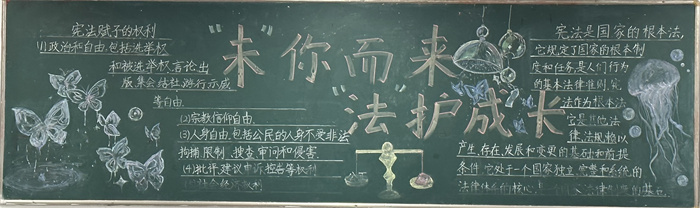 宪法赋予的权利
(1)政治和自由,包括选举权
和被选举权,言论出
版集会结社,游行示威
等自由.
(2)宗教信仰自由.
(3)人身自由,包括公民的人身不受非法
拘捕,限制、搜查,审问和侵害.
(4)批评,建议申诉,控告等权利
"未"你而来
"法"护成长
宪法是国家的根本法,
它规定了国家的根本制
度和任务,是人们行为
的基本法律准则,宪
法作为根本法
它是其他法
律,法规赖以
产生,存在,发展和变更的基础和前提
条件,它处于一个国家独立,完整和系统的
法律体系的核心,是一个